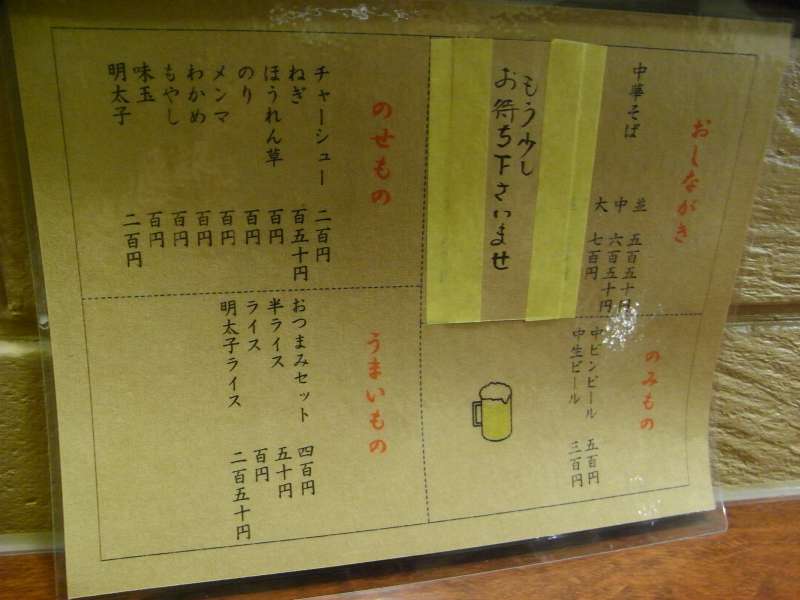 おしながき
中華そば
並 五百五十円
中 六百五十円
大 七百円
もう少し
お待ち下さいませ
のせもの
チャーシュー 二百円
ねぎ 百五十円
ほうれん草 百円
のり 百円
メンマ 百円
わかめ 百円
もやし 百円
味玉 百円
明太子 二百円
のみもの
中ビンビール 五百円
中生ビール 三百円
うまいもの
おつまみセット 四百円
半ライス 五十円
ライス 百円
明太子ライス 二百五十円